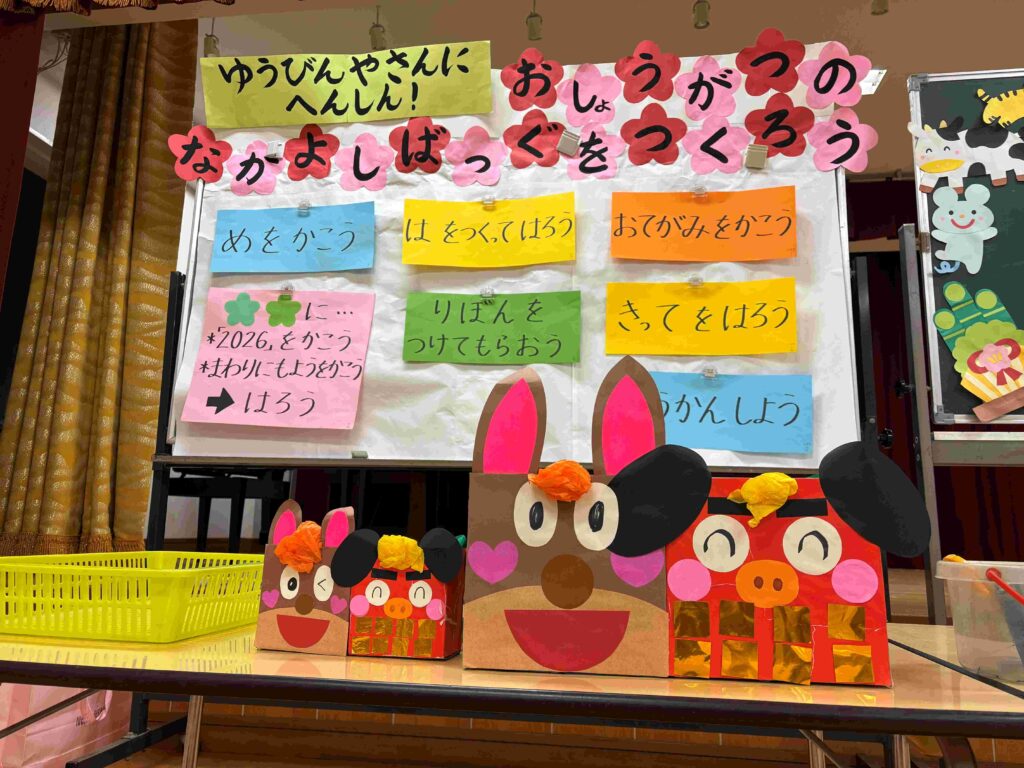 ゆうびんやさんに
へんしん！
おしょうがつの
なかよしばっぐをつくろう
めをかこう
はをつくってはろう
おてがみをかこう
に…
*「2026」をかこう
*まわりにもようをかこう
➡はろう
りぼんを
つけてもらおう
きってをはろう
うかんしよう